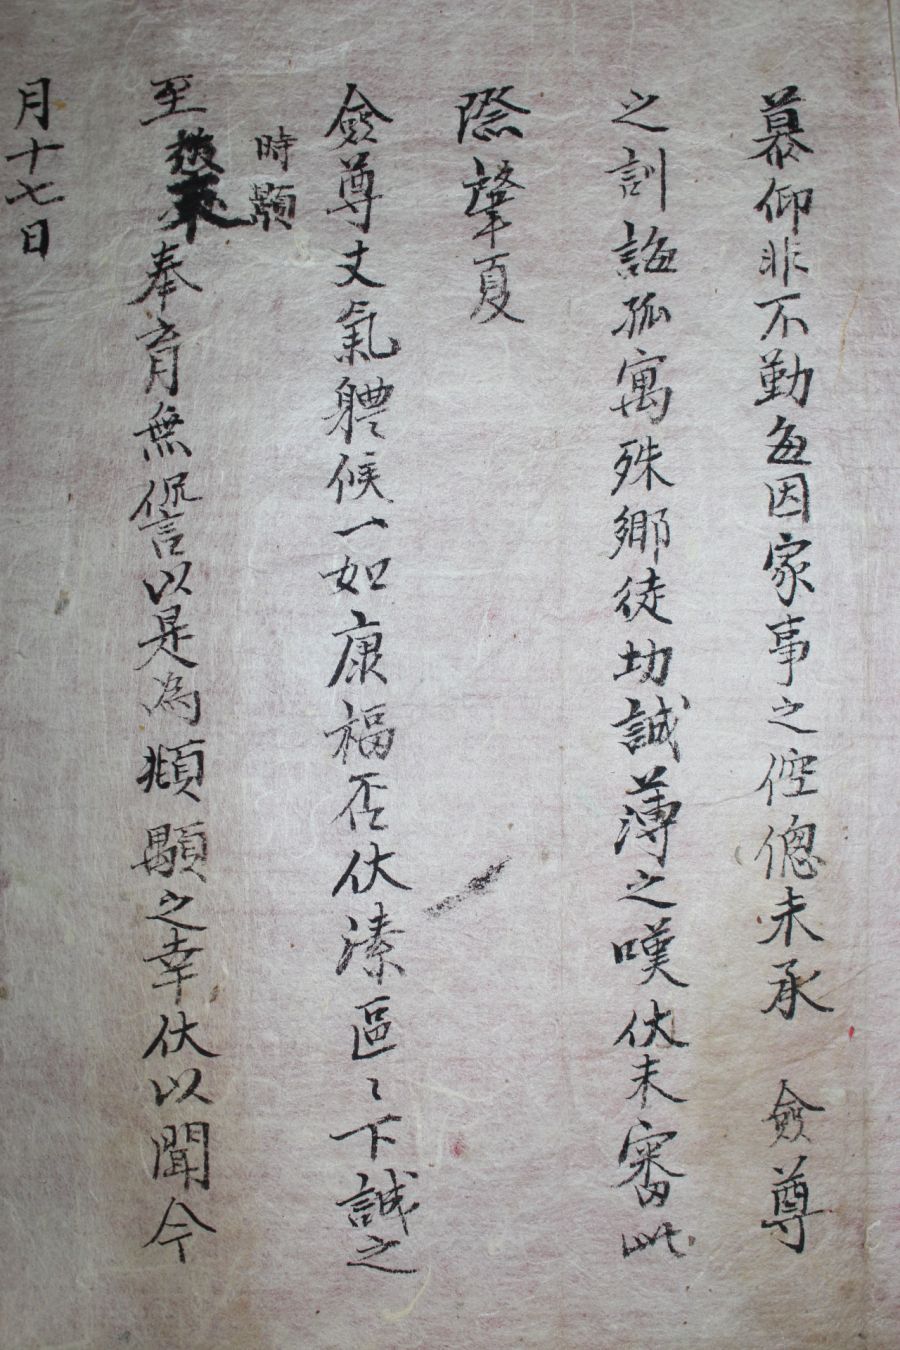 慕仰非不勤每因家事之倥偬未承 僉尊
之訓誨孤寓殊鄉徒切誠薄之嘆伏未審此
際肇夏
僉尊丈氣體候一如康福否伏溱區〻下誠之
至 奉育無愆以是為 之幸伏以聞今
時顯
月十七日